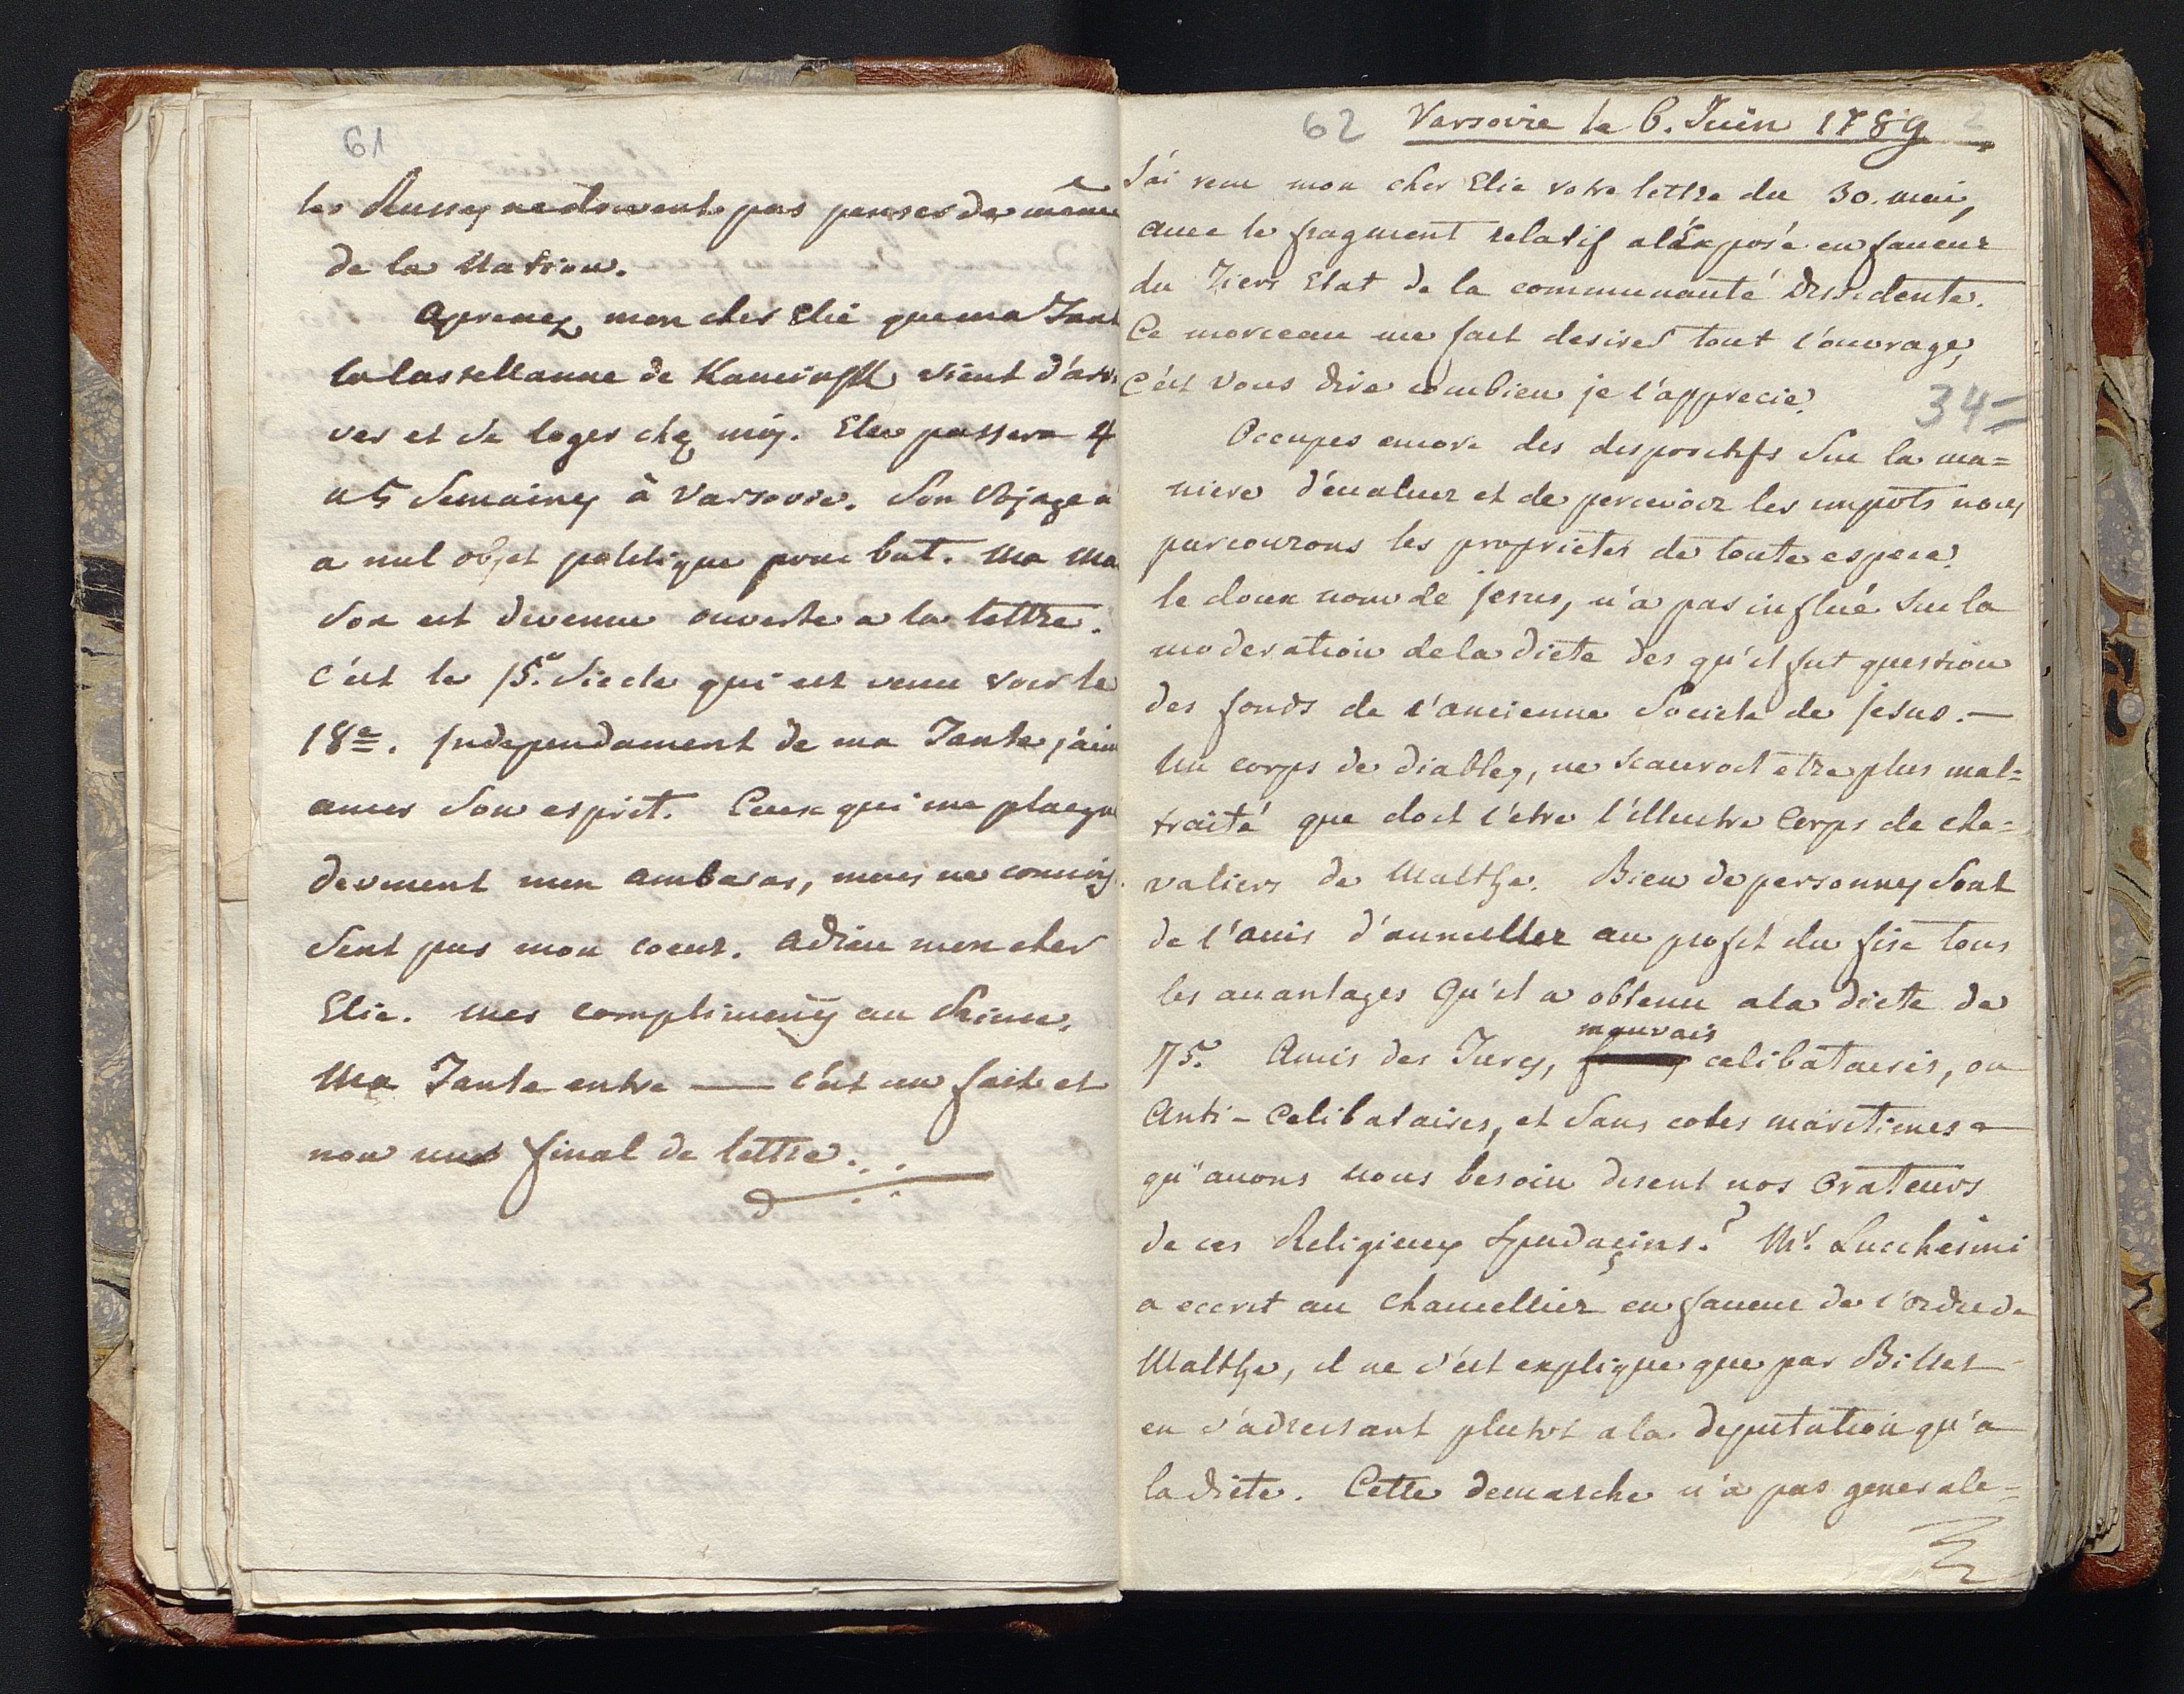 61
les Russes ne doivent pas penser de même
de la Nation.
Aprenez mon cher Elie que ma Tant
la Castellanne de Kaminsk vient d'arri
ver et de loger chez moy. Elle passera 4
a 5 Semaines à Varsovie. Son Voyage n'
a nul objet politique pour but. Ma Mai
son est devenue ouverte a la lettre.
C'est le 15e. Siecle qui est venu voir le
18e. Independament de ma Tante j'aim
amer Son esprit. Ceux qui me plaign
devinent mon ambaras, mais ne connois
sent pas mon coeur. Adieu mon cher
Elie. Mes complimens au Prince.
Ma Tante entre — c'est un fait et
non une final de lettre.
62 Varsovie le 6. Juin 1789
J'ai reçu mon cher Elie votre lettre du 30. mai,
avec le fragment relatif a l'éxposé en faveur
du Tiers Etat de la communauté Dissidente.
Ce morceau me fait desirer tout l'ouvrage,
C'est Vous dire combien je l'apprecie.
34=
Occupes encore des dispositifs Sur la ma=
niere d'évaluer et de percevoir les impots nous
parcourons les proprietés de toute espece.
le doux nom de jesus, n'a pas influé sur la
moderation de la diete des qu'il fut question
des fonds de l'ancienne Societe de jesus. —
Un corps de diables, ne scauroit etre plus mal=
traité que doit l'etre l'illustre Corps de che=
valiers de Malthe. Bien de personnes Sont
de l'avis d'annuller au profit du fisc tous
les avantages Qu'il a obtenu a la diete de
75. Amis des Turcs, mauvais celibataires, ou
Anti-Celibataires, et Sans cotes maritimes —
qu'avons nous besoin disent nos Orateurs
de ces Religieux Spudaçins? Mr. Lucchesini
a ecrit au Chancellier en faveur de l'ordre de
Malthe, il ne s'est explique que par Billet
en s'adressant plutot a la deputation qu'a
la diete. Cette demarche n'a pas generale=